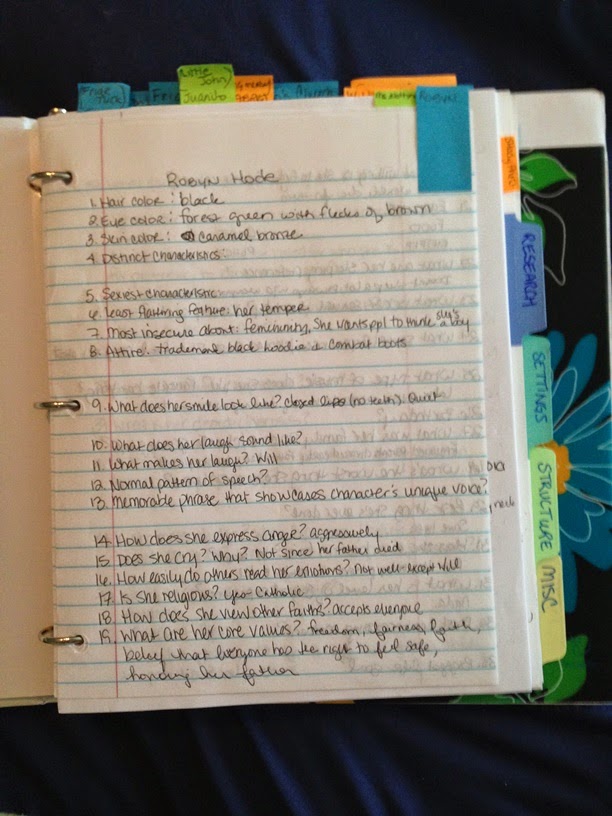 Little John/
Juanito
Friar
Tuck
ROBYN
ROBYN HODE
1. Hair color: black
2. Eye color: forest green with flecks of brown
3. Skin color: caramel bronze
4. Distinct characteristics:
5. Sexiest characteristic
6. Least flattering feature: her temper
7. Most insecure about: femininity, she wants ppl to think she's a boy
8. Attire: trademark black hoodie & combat boots
9. What does her smile look like? closed lips (no teeth). Quick
10. What does her laugh sound like?
11. What makes her laugh? Will
12. Normal pattern of speech?
13. Memorable phrase that showcases character's unique voice?
14. How does she express anger? aggressively
15. Does she cry? Why? Not since her father died
16. How easily do others read her emotions? Not well-except Will
17. Is she religious? yes-Catholic
18. How does she view other faiths? accepts everyone
19. What are her core values? freedom, fairness, faith,
belief that everyone has the right to feel safe,
honoring her father
RESEARCH
SETTINGS
STRUCTURE
MISC